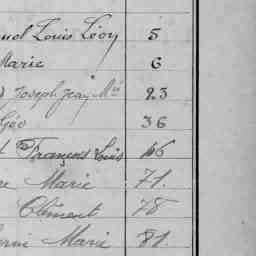 uel Louis Léon 5
Marie 6
Joseph Jean Mie 23
Géo 36
t François Louis 46
re Marie 71.
Clément 78
erine Marie 81.